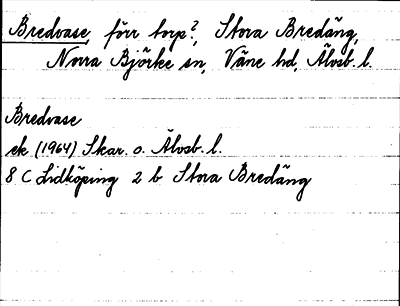 Bredvase, förr torp?, Stora Bredäng,
Norra Björke sn, Väne hd, Älvsb. l.
Bredvase
ek (1964) Skar. o. Älvsb. l.
8 C Lidköping 2 b Stora Bredäng